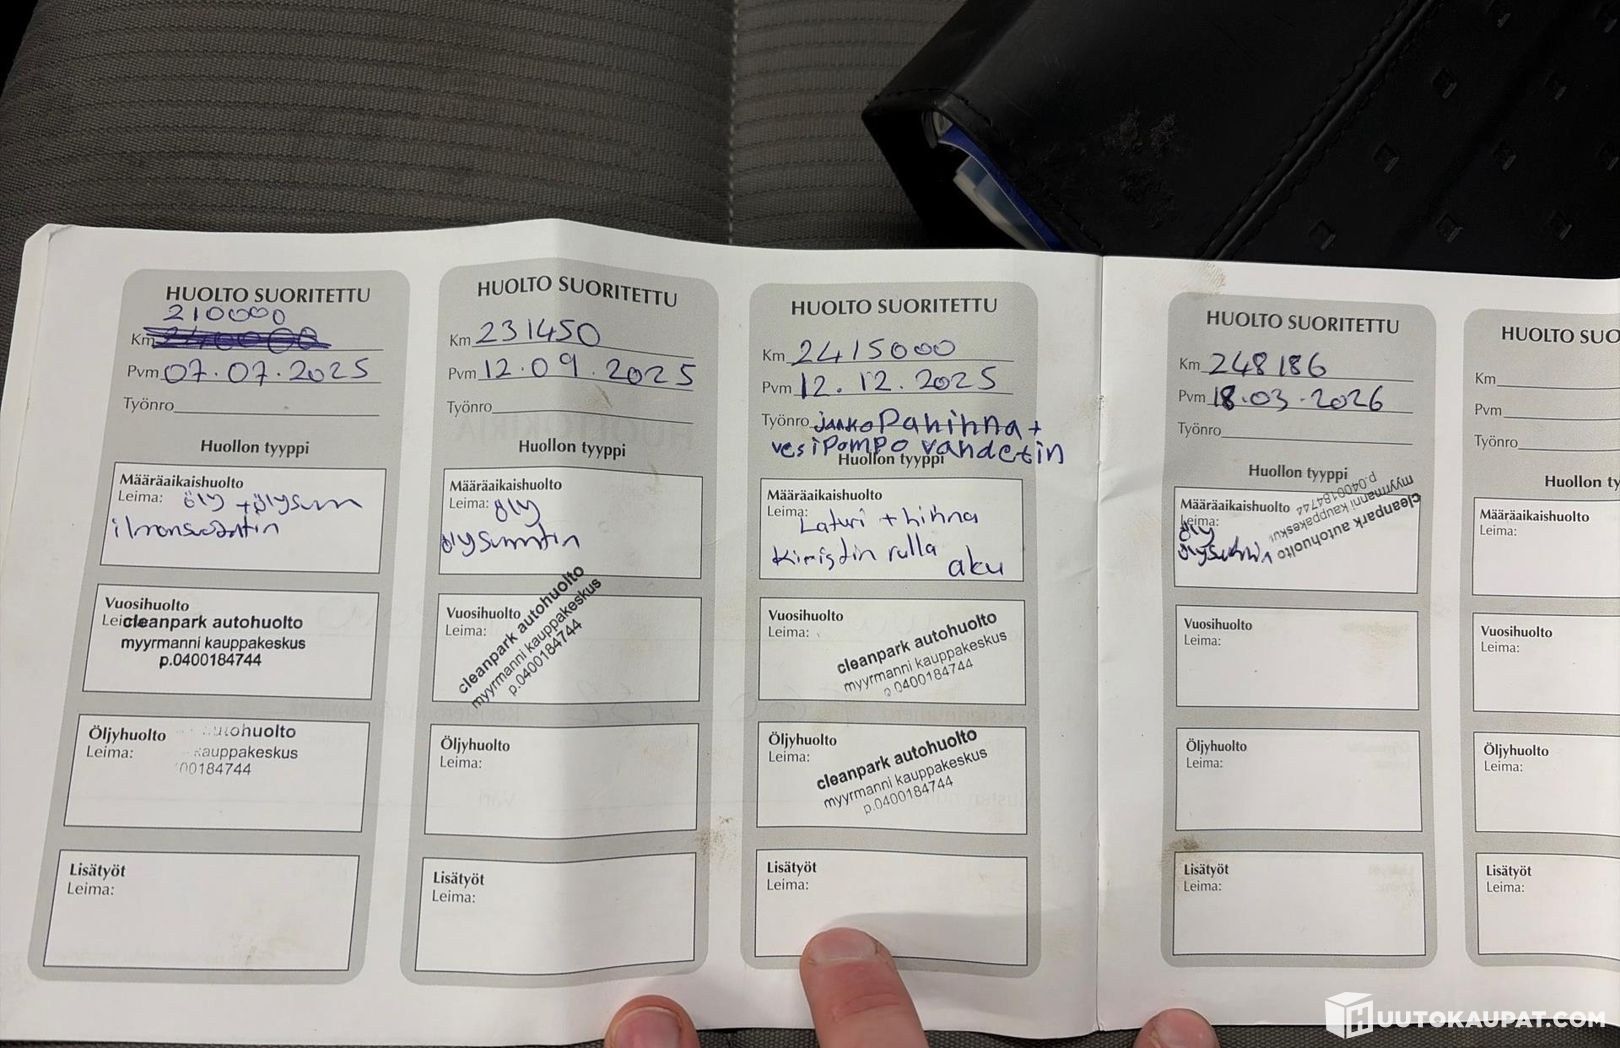 HUOLTO SUORITETTU
210000
Km
Pvm 07.07.2025
Työnro
Huollon tyyppi
Määräaikaishuolto
Leima: öly + ölysum
Vuosihuolto
Leima:
cleanpark autohuolto
myyrmanni kauppakeskus
p.0400184744
Öljyhuolto
Leima:
autohuolto
kauppakeskus
00184744
Lisätyöt
Leima:
HUOLTO SUORITETTU
Km 231450
Pvm 12.09.2025
Työnro
Huollon tyyppi
Määräaikaishuolto
Leima: öly
Vuosihuolto
Leima:
cleanpark autohuolto
myyrmanni kauppakeskus
p.0400184744
Öljyhuolto
Leima:
Lisätyöt
Leima:
HUOLTO SUORITETTU
Km 2415000
Pvm 12.12.2025
Työnro Jakko Pahihna +
vesi Pompo vahdetin
Huollon tyyppi
Määräaikaishuolto
Leima:
Laturi + hihna
Kiristin rulla
aku
Vuosihuolto
Leima:
cleanpark autohuolto
myyrmanni kauppakeskus
p.0400184744
Öljyhuolto
Leima:
cleanpark autohuolto
myyrmanni kauppakeskus
p.0400184744
Lisätyöt
Leima:
HUOLTO SUORITETTU
Km 248186
Pvm 18.03.2026
Työnro
Huollon tyyppi
Määräaikaishuolto
Leima:
öly
cleanpark autohuolto
myyrmanni kauppakeskus
p.0400184744
Vuosihuolto
Leima:
Öljyhuolto
Leima:
Lisätyöt
Leima:
HUOLTO SUO
Km
Pvm
Työnro
Huollon ty
Määräaikaishuolto
Leima:
Vuosihuolto
Leima:
Öljyhuolto
Leima:
Lisätyöt
Leima:
HUUTOKAUPAT.COM